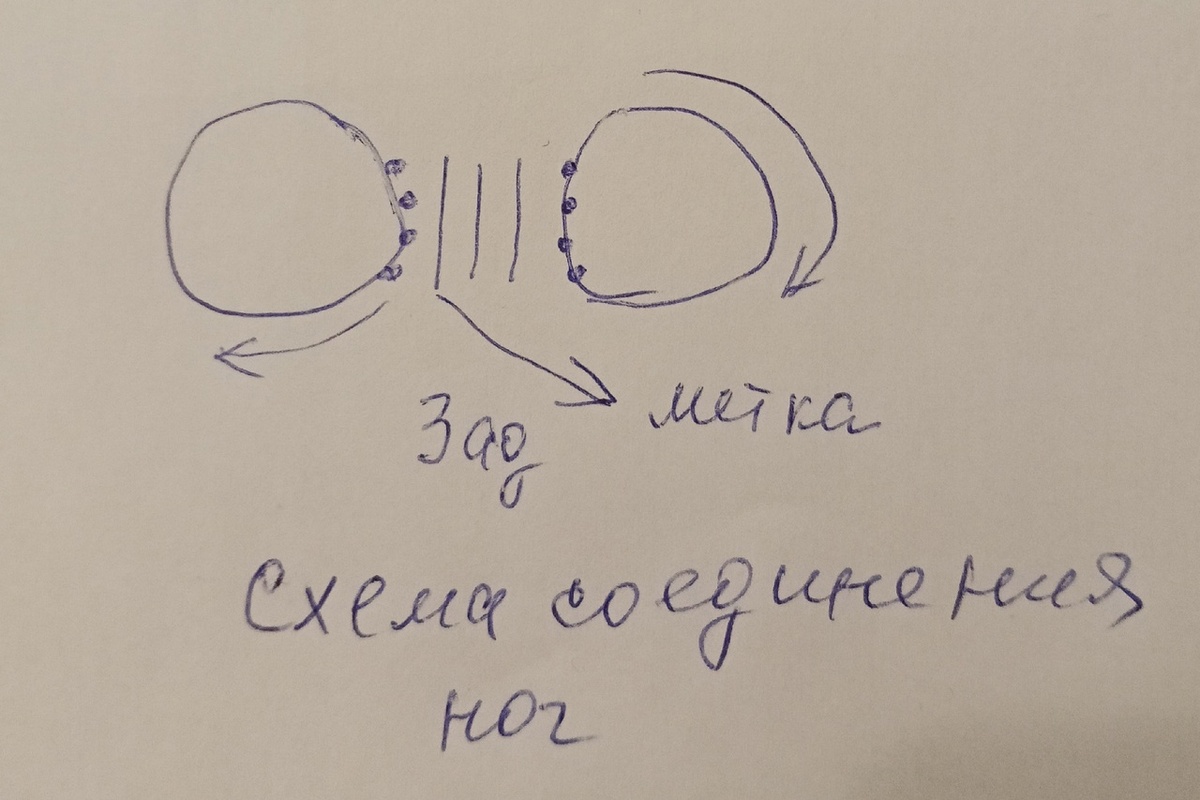 метка
Зад
Схема соединения
ног